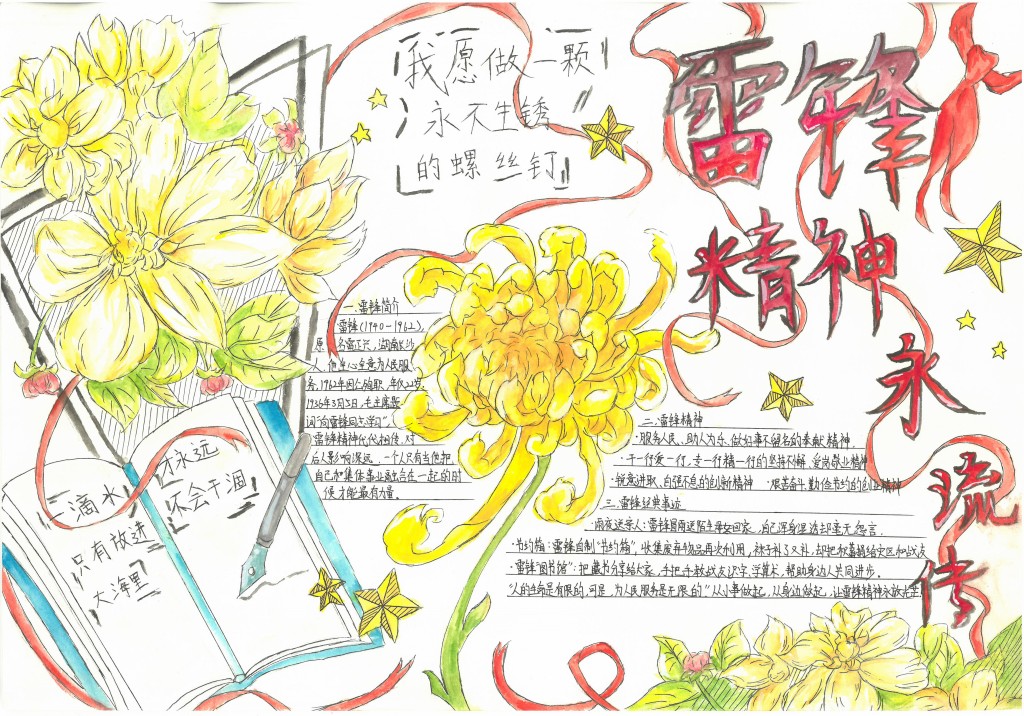 雷锋
精神
永
流
传
我愿做一颗
永不生锈
的螺丝钉
一滴水
只有放进
大海里
才永远
不会干涸
一.雷锋简介
雷锋(1940-1962),
原名雷正兴,湖南长沙
人,他全心全意为人民服
务,1962年因公殉职,年仅22岁。
题
词"向雷锋同志学习"。
雷锋精神代代相传,对
后人影响深远。一个人只有当他把
自己和集体事业融合在一起的时
候才能最有力量。
二.雷锋精神
·服务人民、助人为乐、做好事不留名的奉献精神,
·干一行爱一行,专一行精一行的坚持不懈、爱岗敬业精神
·锐意进取、自强不息的创新精神 ·艰苦奋斗、勤俭节约的创业精神
三.雷锋经典事迹
·雨夜送亲人:雷锋冒雨送陌生母女回家,自己浑身湿透却毫无怨言。
·节约箱:雷锋自制"节约箱",收集废弃物品再次利用,袜子补了又补,却把积蓄捐给灾区和战友
·雷锋"图书馆":把藏书分享给大家,手把手教战友识字、学算术,帮助身边人共同进步。
"人的生命是有限的,可是,为人民服务是无限的"从小事做起,从身边做起,让雷锋精神永放光芒!